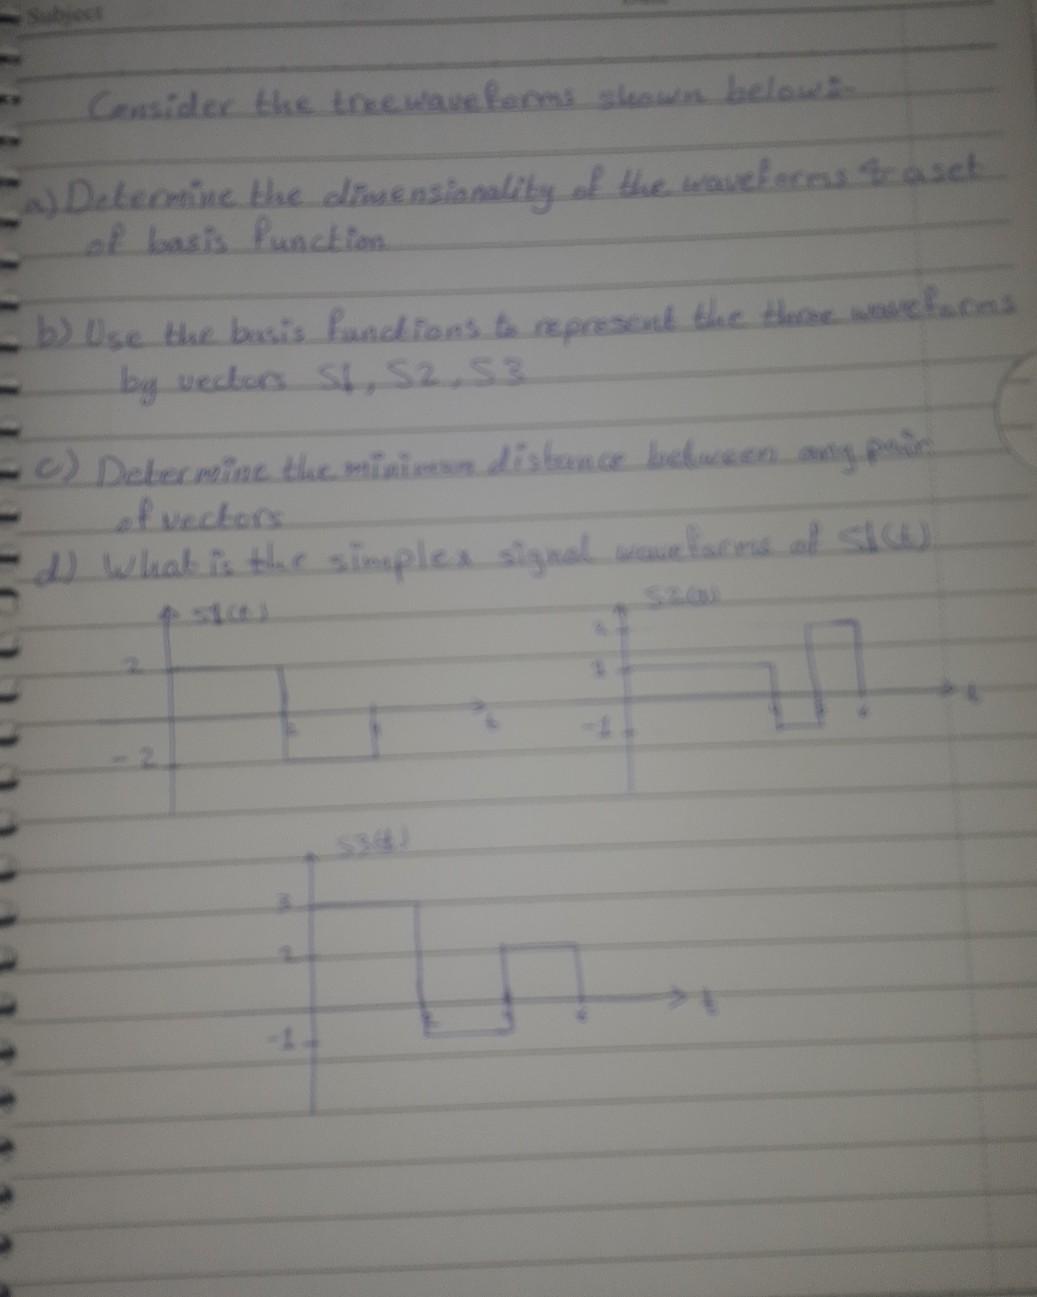 Subject
Consider the treewaveforms shown below:-
a) Determine the dimensionality of the waveforms & a set
of basis function
b) Use the basis functions to represent the three waveforms
by vectors S1, S2, S3
c) Determine the minimum distance between any pair
of vectors
d) What is the simplex signal waveforms of S1(t)
S1(t)
2
-2
t
1
-1
t
S3(t)
3
2
-1
t